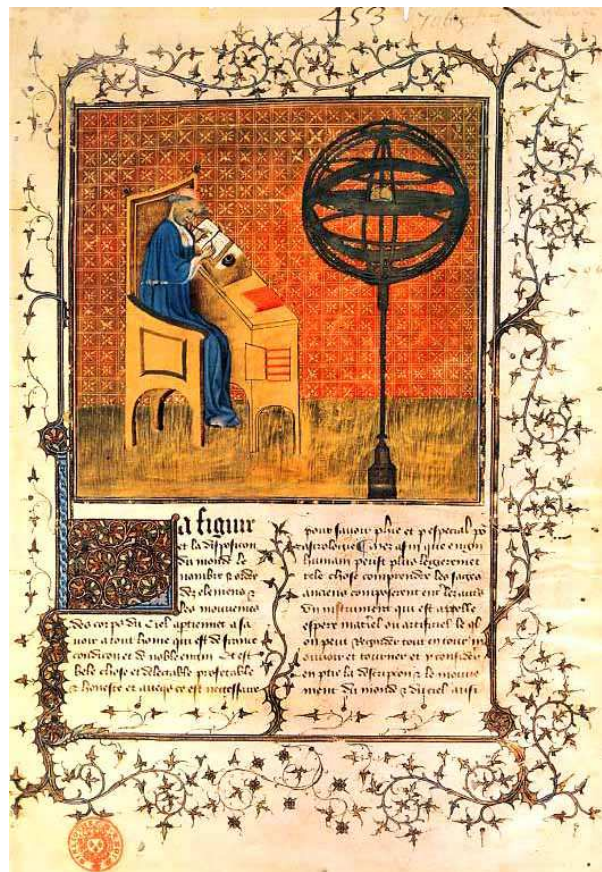 453 7065
La figure
et la disposicion
du monde le
nombre & ordre
des elemens &
les mouvemens
des corps du Ciel aptienent a sa
voir a tout home qui est de france
condicion et de noble engin Et est
bele chose et delectable profetable
& honeste et avecqs ce est necessaire
pour savoir phie et p especial po
astrologie Mes afin que engin
humain peust plus legieremet
tele chose comprendre les sages
anciens composerent
un instrument qui est appelle
espere materiel ou artificiel le ql
on peut Regarder tout entour m
ouvoir et tourner et y considerer
en ptie la descripcion & le mouve
ment du monde & du ciel ausi